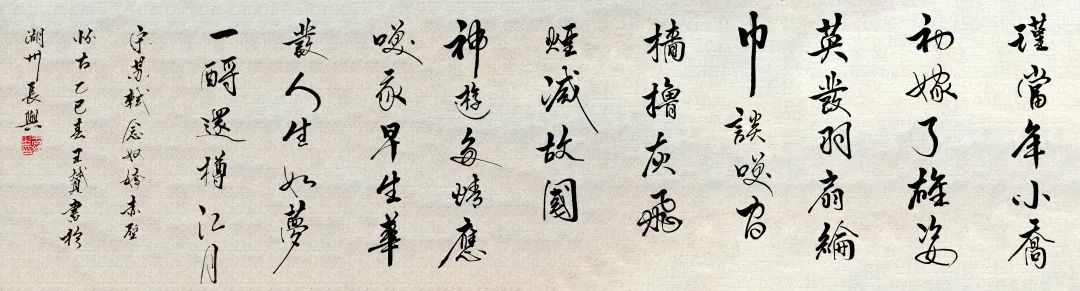 瑾當年小喬
初嫁了雄姿
英發羽扇綸
巾談咲間
檣櫓灰飛
煙滅故國
神遊多情應
咲我早生華
發人生如夢
一酹還樽江月
宋蘇軾念奴嬌赤壁
懷古乙巳春王贇書於
湖州長興